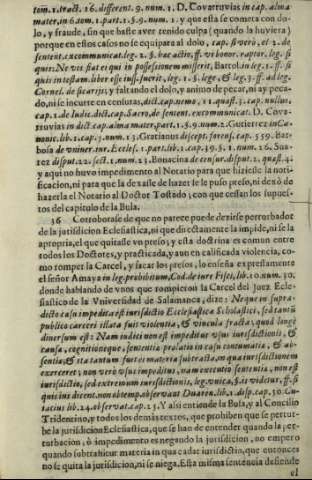 tom.1.tract. 16. different. 9. num. 1. D. Covarruvias in cap. alma
mater, in 6. tom. 1. part. 1. §. 9. num. 1. y que esta se cometa con do-
lo, y fraude, sin que baste aver tenido culpa (quando la huviera)
porque en estos casos no se equipara al dolo, cap. si verò, el 2. de
sentent. excommunicat. leg. 1. §. hæc actio, ff. vi bonor. raptor. leg. si
quis: Ne vis fiat ei qui in possessionem misserit, Bartol. in leg. 1. ff. si
quis in testam. liber esse iuss. fuerit, leg. 1. §. lege, & leg. 3. ff. ad leg.
Cornel. de sicarijs, y faltando el dolo, y animo de pecar, ni ay peca-
do, ni se incurre en censuras, dict. cap. nemo, 11. quæst. 3. cap. nullus,
cap. 2. de Iudic. dict. cap. Sacro, de sentent. excommunicat. D. Cova-
rruvias in dict. cap. alma mater, part. 1. §. 9. num. 2. Gutierrez in Ca-
nonic. lib. 1. cap. 3. num. 13. Gratianus discept. forens. cap. 559. Bar-
bosa de vniver. iur. Eccles. 1. part. lib. 1. cap. 39. §. 1. num. 26. Sua-
rez disput. 22. sect. 1. num. 23. Bonacina de censur. disput. 2. quæst. 4.
y aqui no huvo impedimento al Notario para que hiziesse la noti-
ficacion, ni para que la dexasse de hazer le le puso preso, ni dexò de
hazerla el Notario al Doctor Tostado; con que cessan los supues-
tos del capitulo de la Bula.
36 Corroborase de que no parece puede dezirse perturbador
de la jurisdicion Eclesiastica, ni que directamente la impide, ni se la
apropria, el que quitasse vn preso; y esta doctrina es comun entre
todos los Doctores, y practicada, y aun en calificada violencia, co-
mo romper la Carcel, y sacar los presos, lo enseña expressamente
el señor Amaya in leg. prohibitum, Cod. de iure Fisci, lib. 10. num. 30.
donde hablando de vnos que rompieron la Carcel del Juez Ecle-
siastico de la Vniversidad de Salamanca, dize: Neque in supra-
dicto casu impedita est iurisdictio Ecclesiastica Scholastici, sed tantùm
publico carceri illata fuit violentia, & vincula fracta, quod longè
diversum est: Nam iudici non est impeditus vsus iurisdictionis, &
causæ, cognitioneque, sententia prolatio in casu contumatia, & ab-
sentia, & sic tantum fuit ei materia subtracta, in qua iurisdictionem
exerceret; non verò vsus impeditus, nam executio sententiæ, non est
iurisdictio, sed extremum iurisdictionis, leg. vnica, §. is videtur, ff. si
quis ius dicent. non obtemp. observant Duaren. lib. 1. disp. cap. 30. Cu-
iacius lib. 24. observat. cap. 23. Y assi entiende la Bula, y al Concilio
Tridentino, y todos los demàs textos, que prohiben que se pertur-
be la jurisdicion Eclesiastica, que se han de entender quando la per-
turbacion, ò impedimento es negando la jurisdicion, no empero
quando subtrahitur materia in qua cadat iurisdictio, que entonces
no se quita la jurisdicion, ni se niega. Esta misma sentencia defiende
el